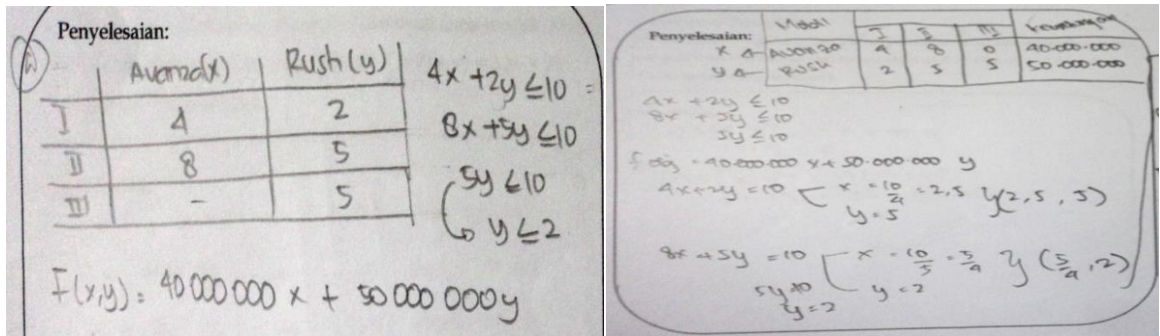 Penyelesaian:
Avanza(x) Rush(y)
I 4 2
II 8 5
III - 5
4x + 2y ≤ 10
8x + 5y ≤ 10
5y ≤ 10
y ≤ 2
F(x,y) = 40 000 000 x + 50 000 000y
Penyelesaian:
Mobil I II III Keuntungan
x Avanza 4 8 0 40.000.000
y Rush 2 5 5 50.000.000
4x + 2y ≤ 10
8x + 5y ≤ 10
5y ≤ 10
= 40.000.000 x + 50.000.000 y
4x + 2y = 10 x = 10/4 = 2,5 (2,5 , 5)
y = 5
8x + 5y = 10 x = 10/5 = 5/4 (5/4, 2)
y = 2
y = 2